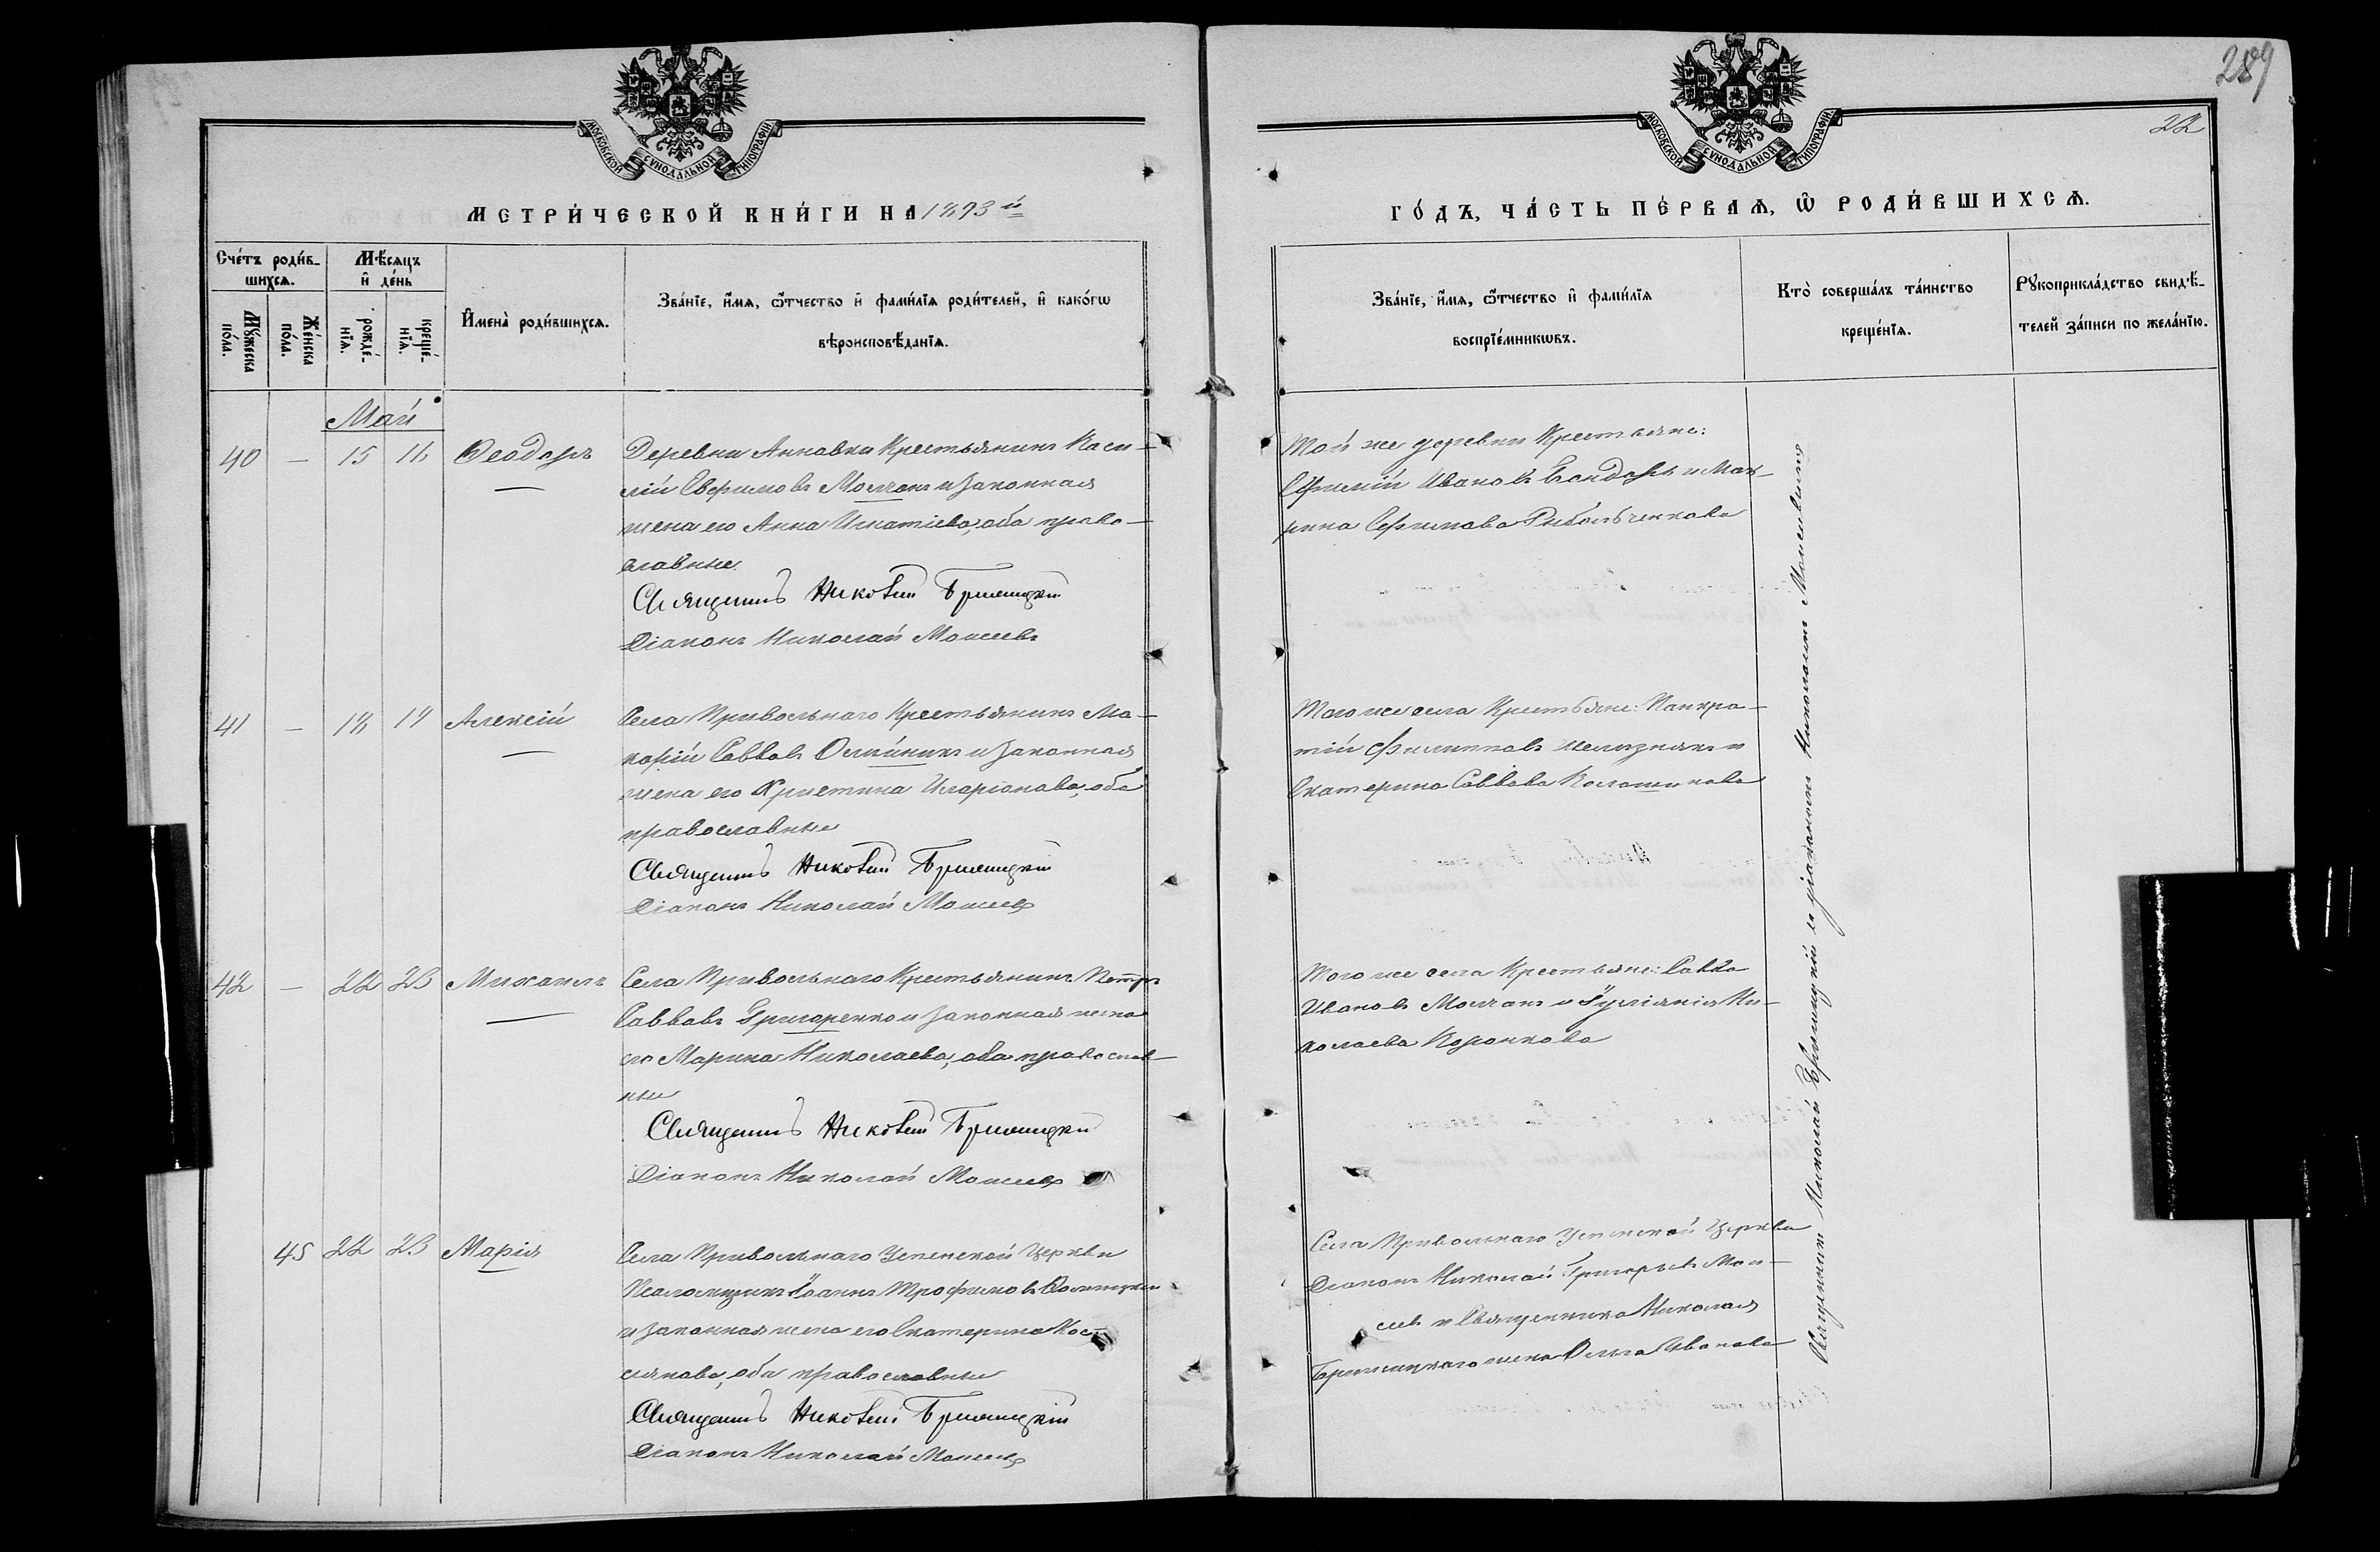 289
22
МОСКОВСКОЙ СѴНОДАЛЬНОЙ ТИПОГРАФІИ
МОСКОВСКОЙ СѴНОДАЛЬНОЙ ТИПОГРАФІИ
МЕТРИ́ЧЕСКОЙ КНИ́ГИ НА 1893й
ГО́ДЪ, ЧА́СТЬ ПЕ́РВАѦ, Ѡ҆ РОДИ́ВШИХСѦ.
Сче́тъ роди́в-
шихсѧ.
Мꙋ́жеска
по́ла.
Же́нска
по́ла.
Мѣ́сѧцъ
и҆ де́нь
рожде́-
нїѧ.
креще́-
нїѧ.
И҆мена̀ роди́вшихсѧ.
Зва́нїе, и҆́мѧ, ѻ҆́тчество и҆ фами́лїѧ роди́телей, и҆ како́гѡ
вѣроисповѣ́данїѧ.
Зва́нїе, и҆́мѧ, ѻ҆́тчество и҆ фами́лїѧ
воспрїе́мникѡвъ.
Кто̀ соверша́лъ та́инство
креще́нїѧ.
Рꙋкоприкла́дство свидѣ́-
телей за́писи по жела́нїю.
Май
40 — 15 16 Ѳеодоръ
Деревни Анновки Крестьянинъ Васи-
лій Евфимовъ Молчанъ и законная
жена его Анна Игнатіева, оба право-
славные.
Священникъ Николай Брилицкій
Діаконъ Николай Моисеевъ
Той же деревни Крестьяне:
Ефимій Ивановъ Бондарь и Мат-
рина Ефимова
41 — 18 19 Алексій
Села Привольнаго Крестьянинъ Ма-
карій Саввовъ Олійникъ и законная
жена его Христина Иларіонова, оба
православные
Священникъ Николай Брилицкій
Діаконъ Николай Моисеевъ
Того же села Крестьяне: Панкра-
тій Филипповъ Желѣзнякъ и
Екатерина Саввова
42 — 22 23 Михаилъ
Села Привольнаго Крестьянинъ Петръ
Саввовъ Григоренко и законная жена
его Марина Николаева, оба православ-
ные
Священникъ Николай Брилицкій
Діаконъ Николай Моисеевъ
Того же села Крестьяне: Савва
Ивановъ Молчанъ и Іуліанія Ни-
колаева
45 22 23 Марія
Села Привольнаго Успенской Церкви
Псаломщикъ Іоаннъ Трофимовъ
и законная жена его Екатерина Кас-
сіянова, оба православные
Священникъ Николай Брилицкій
Діаконъ Николай Моисеевъ
Села Привольнаго Успенской Церкви
Діаконъ Николай Григорьевъ Мои-
сеевъ и Священника Николая
Брилицкаго жена Ольга Иванова
Священникъ Николай Брилицкій съ діакономъ Николаемъ Моисеевымъ